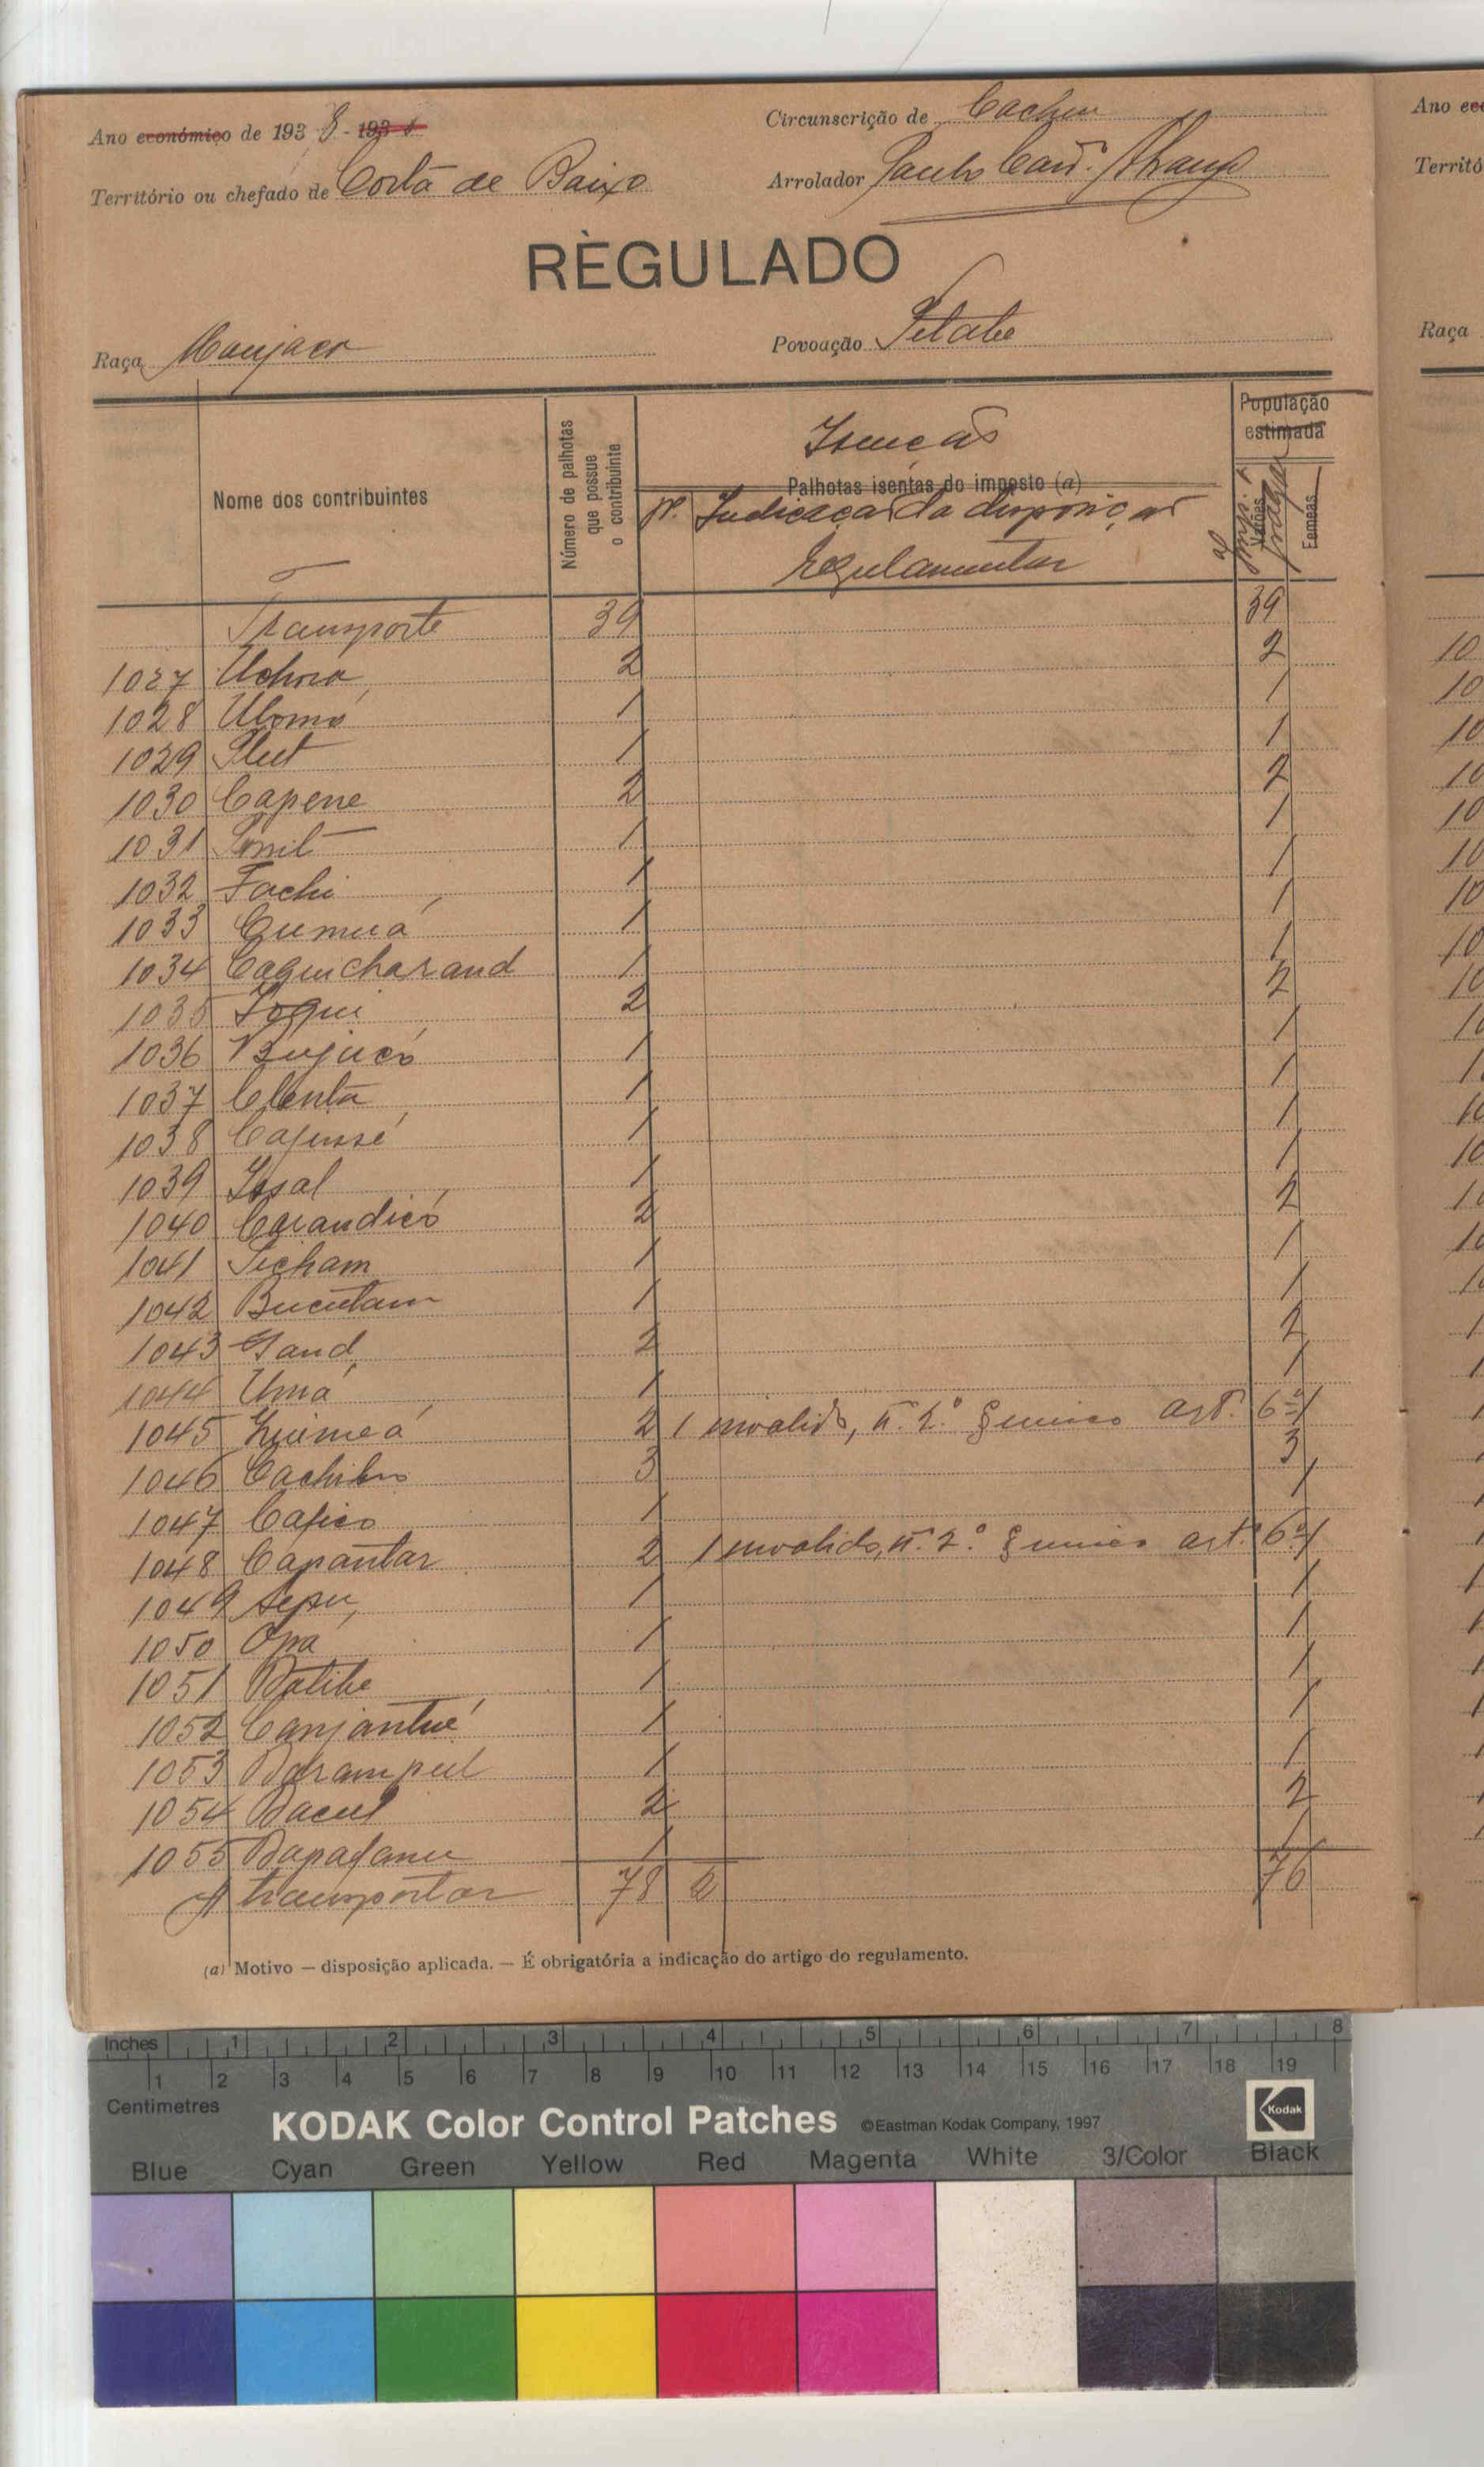 Ano económico de 1938 - 193
Circunscrição de Cacheu
Território ou chefado de Costa de Baixo
Arrolador Paulo
RÈGULADO
Raça Manjaco
Povoação Petabe
Nome dos contribuintes
Número de palhotas que possue o contribuinte
Isenção
Palhotas isentas do imposto (a)
N.º Indicação da disposição
Regulamentar
População estimada
Varões
Femeas
a pagar
Transporte 39 39
1027 Uchoró 2 2
1028 Ulomó 1 1
1029 Plut 1 1
1030 Capene 2 2
1031 1 1
1032 Fachi 1 1
1033 Cumuá 1 1
1034 Caguicharand 1 1
1035 Togui 2 2
1036 Bujucó 1 1
1037 Clenta 1 1
1038 Cajussé 1 1
1039 Issal 1 1
1040 Carandicó 2 2
1041 Picham 1 1
1042 Bucutam 1 1
1043 Gand 2 2
1044 Umá 1 1
1045 2 1 invalido, n.º 2.º § unico art.º 6º 1
1046 Cachibro 3 3
1047 Cafico 1 1
1048 Capantar 2 1 invalido, n.º 2.º § unico art.º 6º 1
1049 Sepu 1 1
1050 Opá 1 1
1051 Batibe 1 1
1052 Canjantué 1 1
1053 Barampul 1 1
1054 Bacul 2 2
1055 Bapafanu 1 1
A transportar 78 2 76
(a) Motivo — disposição aplicada. — É obrigatória a indicação do artigo do regulamento.
Ano ec
Territó
Raça
Inches 1 2 3 4 5 6 7 8
1 2 3 4 5 6 7 8 9 10 11 12 13 14 15 16 17 18 19
Centimetres
KODAK Color Control Patches ©Eastman Kodak Company, 1997 Kodak
Blue Cyan Green Yellow Red Magenta White 3/Color Black